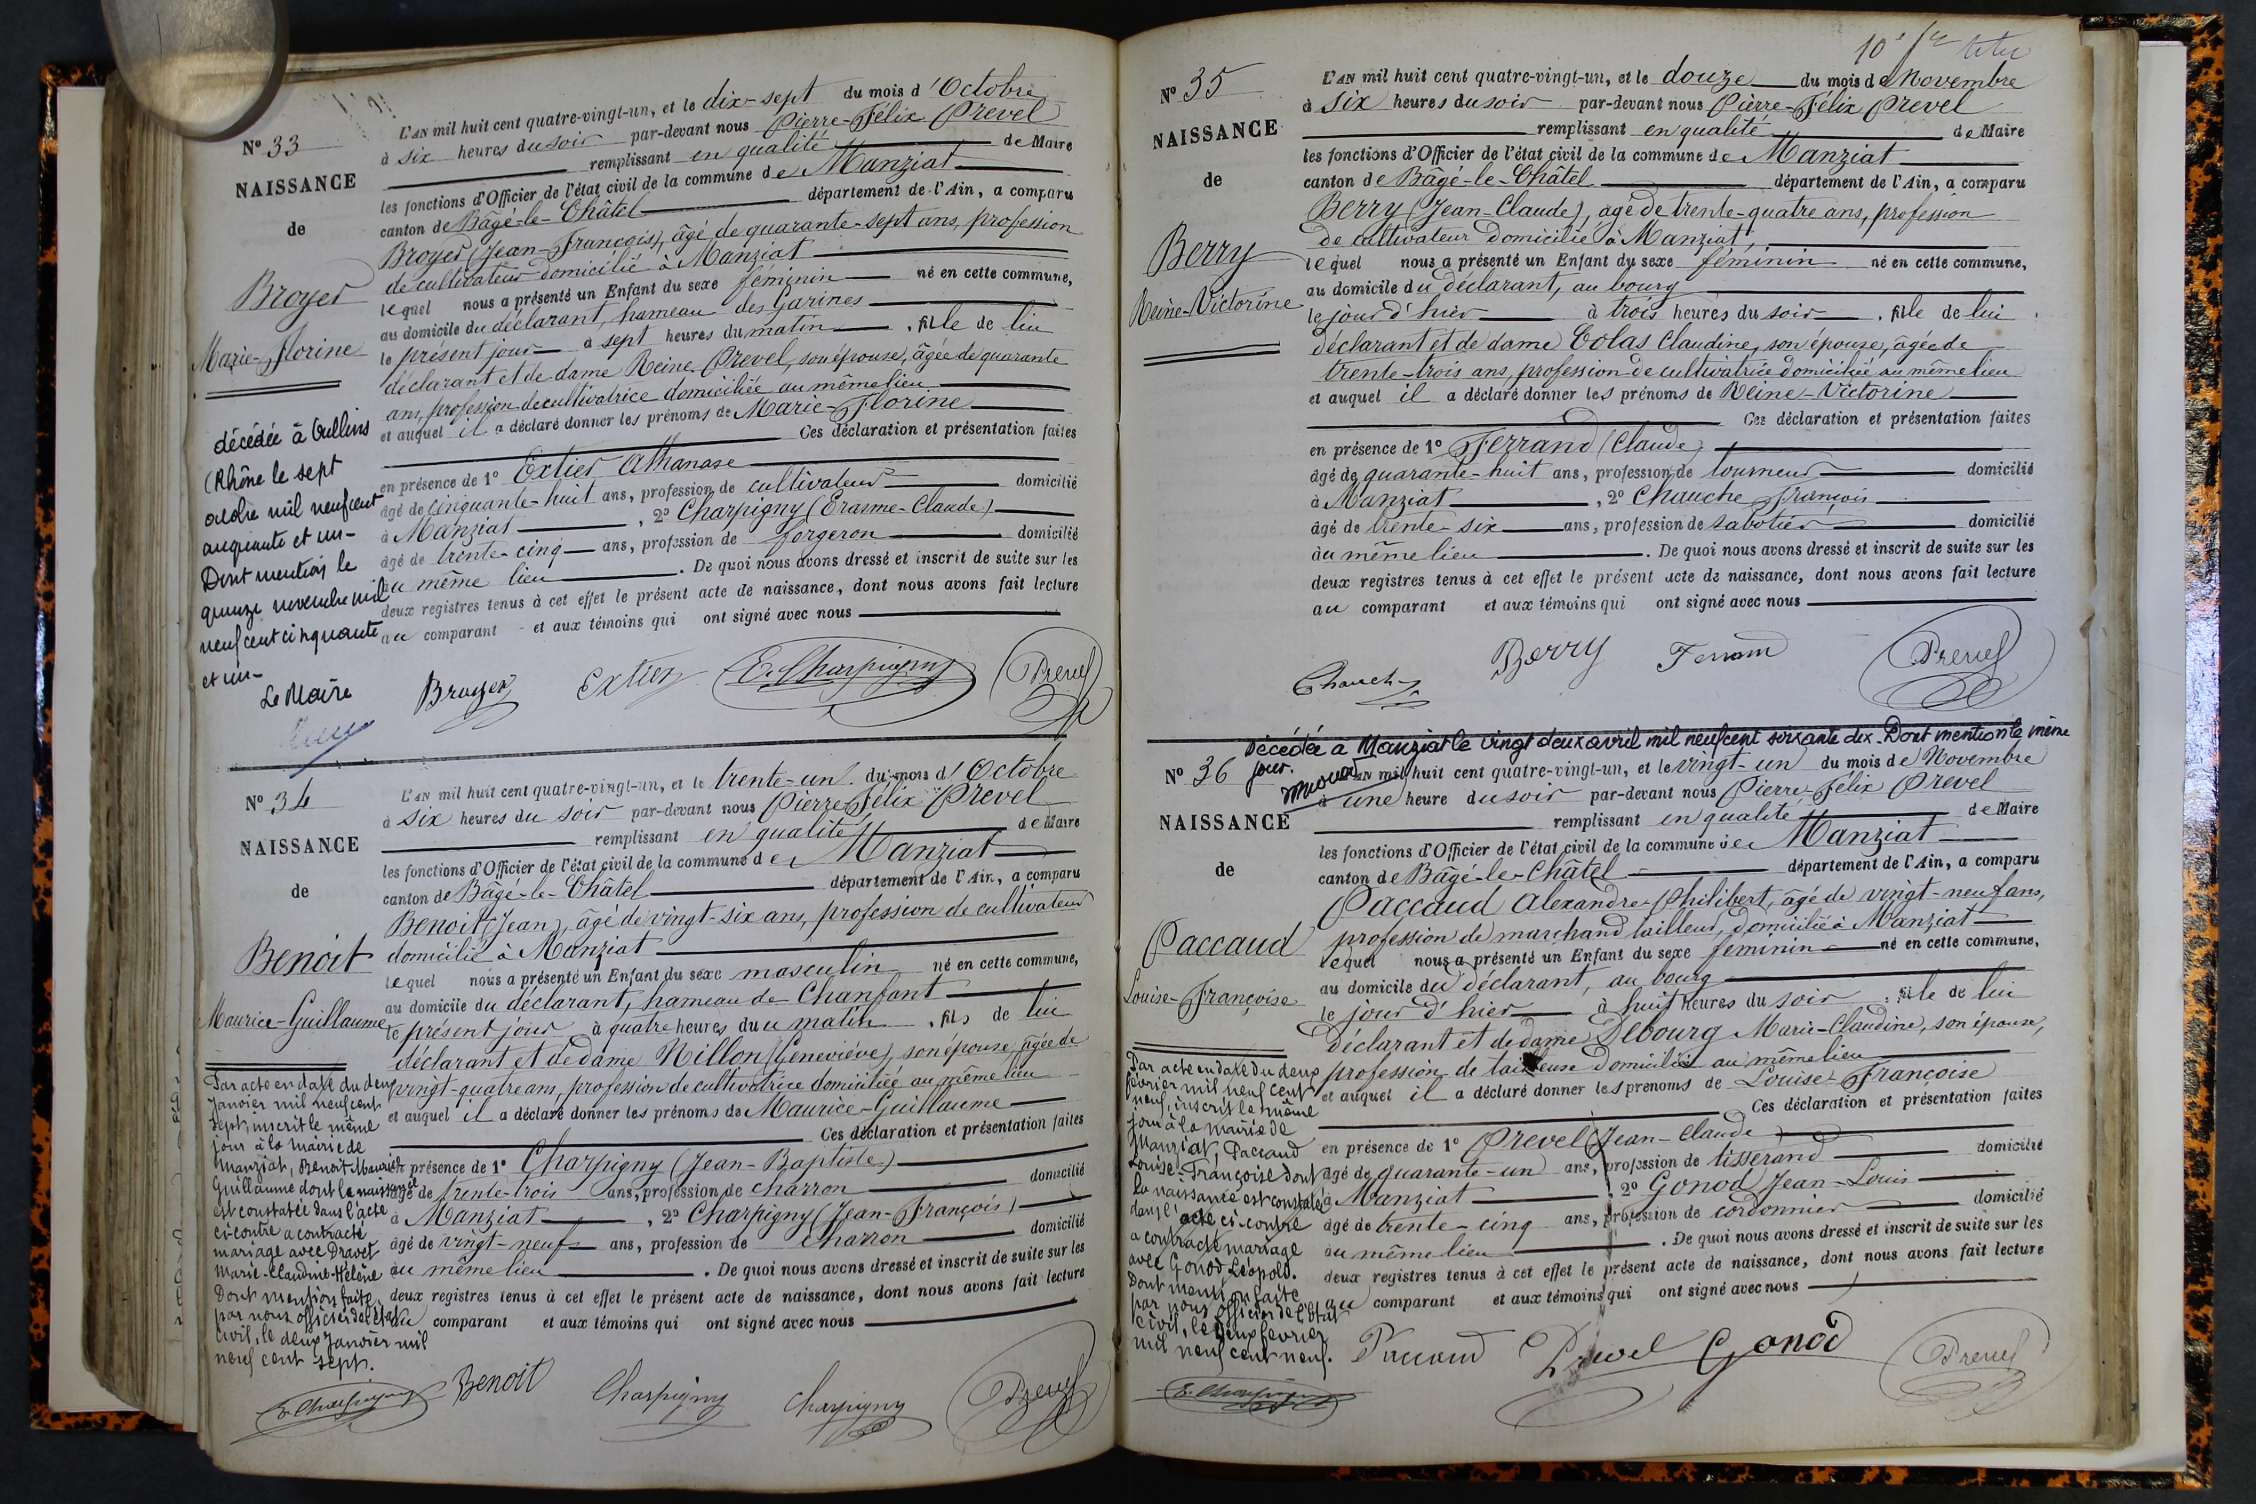 L'AN mil huit cent quatre-vingt-un, et le dix-sept du mois d'Octobre
N° 33
à six heures du soir par-devant nous Pierre-Félix Prevel
remplissant en qualité de Maire
NAISSANCE
les fonctions d'Officier de l'état civil de la commune de Manziat
de
canton de Bâgé-le-Châtel département de l'Ain, a comparu
Broyer (Jean-François), âgé de quarante-sept ans, profession
de cultivateur domicilié à Manziat
Broyer
lequel nous a présenté un Enfant du sexe féminin né en cette commune,
au domicile du déclarant, hameau des Garines
Marie-Florine
le présent jour à sept heures du matin, fille de lui
déclarant et de dame Reine Prevel, son épouse, âgée de quarante
ans, profession de cultivatrice domiciliée au même lieu
et auquel il a déclaré donner les prénoms de Marie-Florine
Ces déclaration et présentation faites
en présence de 1° Extier Athanase
âgé de cinquante-huit ans, profession de cultivateur domicilié
à Manziat, 2° Charpigny (Erasme-Claude)
âgé de trente-cinq ans, profession de forgeron domicilié
au même lieu. De quoi nous avons dressé et inscrit de suite sur les
deux registres tenus à cet effet le présent acte de naissance, dont nous avons fait lecture
au comparant et aux témoins qui ont signé avec nous
décédée à Oullins
(Rhône le sept
octobre mil neuf cent
cinquante et un-
Dont mention le
quinze novembre mil
neuf cent cinquante
et un-
Le Maire
Broyer Extier E. Charpigny Prevel
L'AN mil huit cent quatre-vingt-un, et le trente-un du mois d'Octobre
N° 34
à six heures du soir par-devant nous Pierre Félix Prevel
remplissant en qualité de Maire
NAISSANCE
les fonctions d'Officier de l'état civil de la commune de Manziat
de
canton de Bâgé-le-Châtel département de l'Ain, a comparu
Benoit (Jean), âgé de vingt-six ans, profession de cultivateur
Benoit
domicilié à Manziat
lequel nous a présenté un Enfant du sexe masculin né en cette commune,
au domicile du déclarant, hameau de Chanfant
Maurice-Guillaume
le présent jour à quatre heures du matin, fils de lui
déclarant et de dame Nillon (Geneviève), son épouse, âgée de
vingt-quatre ans, profession de cultivatrice domiciliée au même lieu
et auquel il a déclaré donner les prénoms de Maurice-Guillaume
Ces déclaration et présentation faites
en présence de 1° Charpigny (Jean-Baptiste)
âgé de trente-trois ans, profession de charron domicilié
à Manziat, 2° Charpigny (Jean-François)
âgé de vingt-neuf ans, profession de charron domicilié
au même lieu. De quoi nous avons dressé et inscrit de suite sur les
deux registres tenus à cet effet le présent acte de naissance, dont nous avons fait lecture
au comparant et aux témoins qui ont signé avec nous
Par acte en date du deux
Janvier mil neuf cent
sept, inscrit le même
jour à la mairie de
Manziat, Benoit Maurice
Guillaume dont la naissance
est constatée dans l'acte
ci-contre a contracté
mariage avec Dravet
Marie-Claudine-Hélène
Dont mention faite
par nous officier de l'état
civil, le deux Janvier mil
neuf cent sept.
E. Charpigny Benoit Charpigny Charpigny Prevel
10e
L'AN mil huit cent quatre-vingt-un, et le douze du mois de Novembre
N° 35
à six heures du soir par-devant nous Pierre-Félix Prevel
remplissant en qualité de Maire
NAISSANCE
les fonctions d'Officier de l'état civil de la commune de Manziat
de
canton de Bâgé-le-Châtel département de l'Ain, a comparu
Berry (Jean-Claude), âgé de trente-quatre ans, profession
de cultivateur domicilié à Manziat,
Berry
lequel nous a présenté un Enfant du sexe féminin né en cette commune,
au domicile du déclarant, au bourg
Reine-Victorine
le jour d'hier à trois heures du soir, fille de lui
déclarant et de dame Colas Claudine, son épouse, âgée de
trente-trois ans, profession de cultivatrice domiciliée au même lieu
et auquel il a déclaré donner les prénoms de Reine-Victorine
Ces déclaration et présentation faites
en présence de 1° Ferrand (Claude)
âgé de quarante-huit ans, profession de tourneur domicilié
à Manziat, 2° Chauche François
âgé de trente-six ans, profession de sabotier domicilié
au même lieu. De quoi nous avons dressé et inscrit de suite sur les
deux registres tenus à cet effet le présent acte de naissance, dont nous avons fait lecture
au comparant et aux témoins qui ont signé avec nous
Chauche Berry Ferrand Prevel
Décédée à Manziat le vingt deux avril mil neuf cent soixante dix. Dont mention le même
jour.
L'AN mil huit cent quatre-vingt-un, et le vingt-un du mois de Novembre
N° 36
à une heure du soir par-devant nous Pierre-Félix Prevel
remplissant en qualité de Maire
NAISSANCE
les fonctions d'Officier de l'état civil de la commune de Manziat
de
canton de Bâgé-le-Châtel département de l'Ain, a comparu
Paccaud Alexandre-Philibert, âgé de vingt-neuf ans,
profession de marchand tailleur, domicilié à Manziat
Paccaud
lequel nous a présenté un Enfant du sexe féminin né en cette commune,
au domicile du déclarant, au bourg
Louise-Françoise
le jour d'hier à huit heures du soir, fille de lui
déclarant et de dame Debourg Marie-Claudine, son épouse,
profession de tailleuse domiciliée au même lieu
et auquel il a déclaré donner les prénoms de Louise-Françoise
Ces déclaration et présentation faites
en présence de 1° Prevel (Jean-Claude)
âgé de quarante-un ans, profession de tisserand domicilié
à Manziat, 2° Gonod Jean-Louis
âgé de trente-cinq ans, profession de cordonnier domicilié
au même lieu. De quoi nous avons dressé et inscrit de suite sur les
deux registres tenus à cet effet le présent acte de naissance, dont nous avons fait lecture
au comparant et aux témoins qui ont signé avec nous
Par acte en date du deux
février mil neuf cent
neuf, inscrit le même
jour à la mairie de
Manziat, Paccaud
Louise-Françoise dont
la naissance est constatée
dans l'acte ci-contre
a contracté mariage
avec Gonod Léopold.
Dont mention faite
par nous officier de l'état
civil, le deux février
mil neuf cent neuf.
E. Charpigny Paccaud Prevel Gonod Prevel